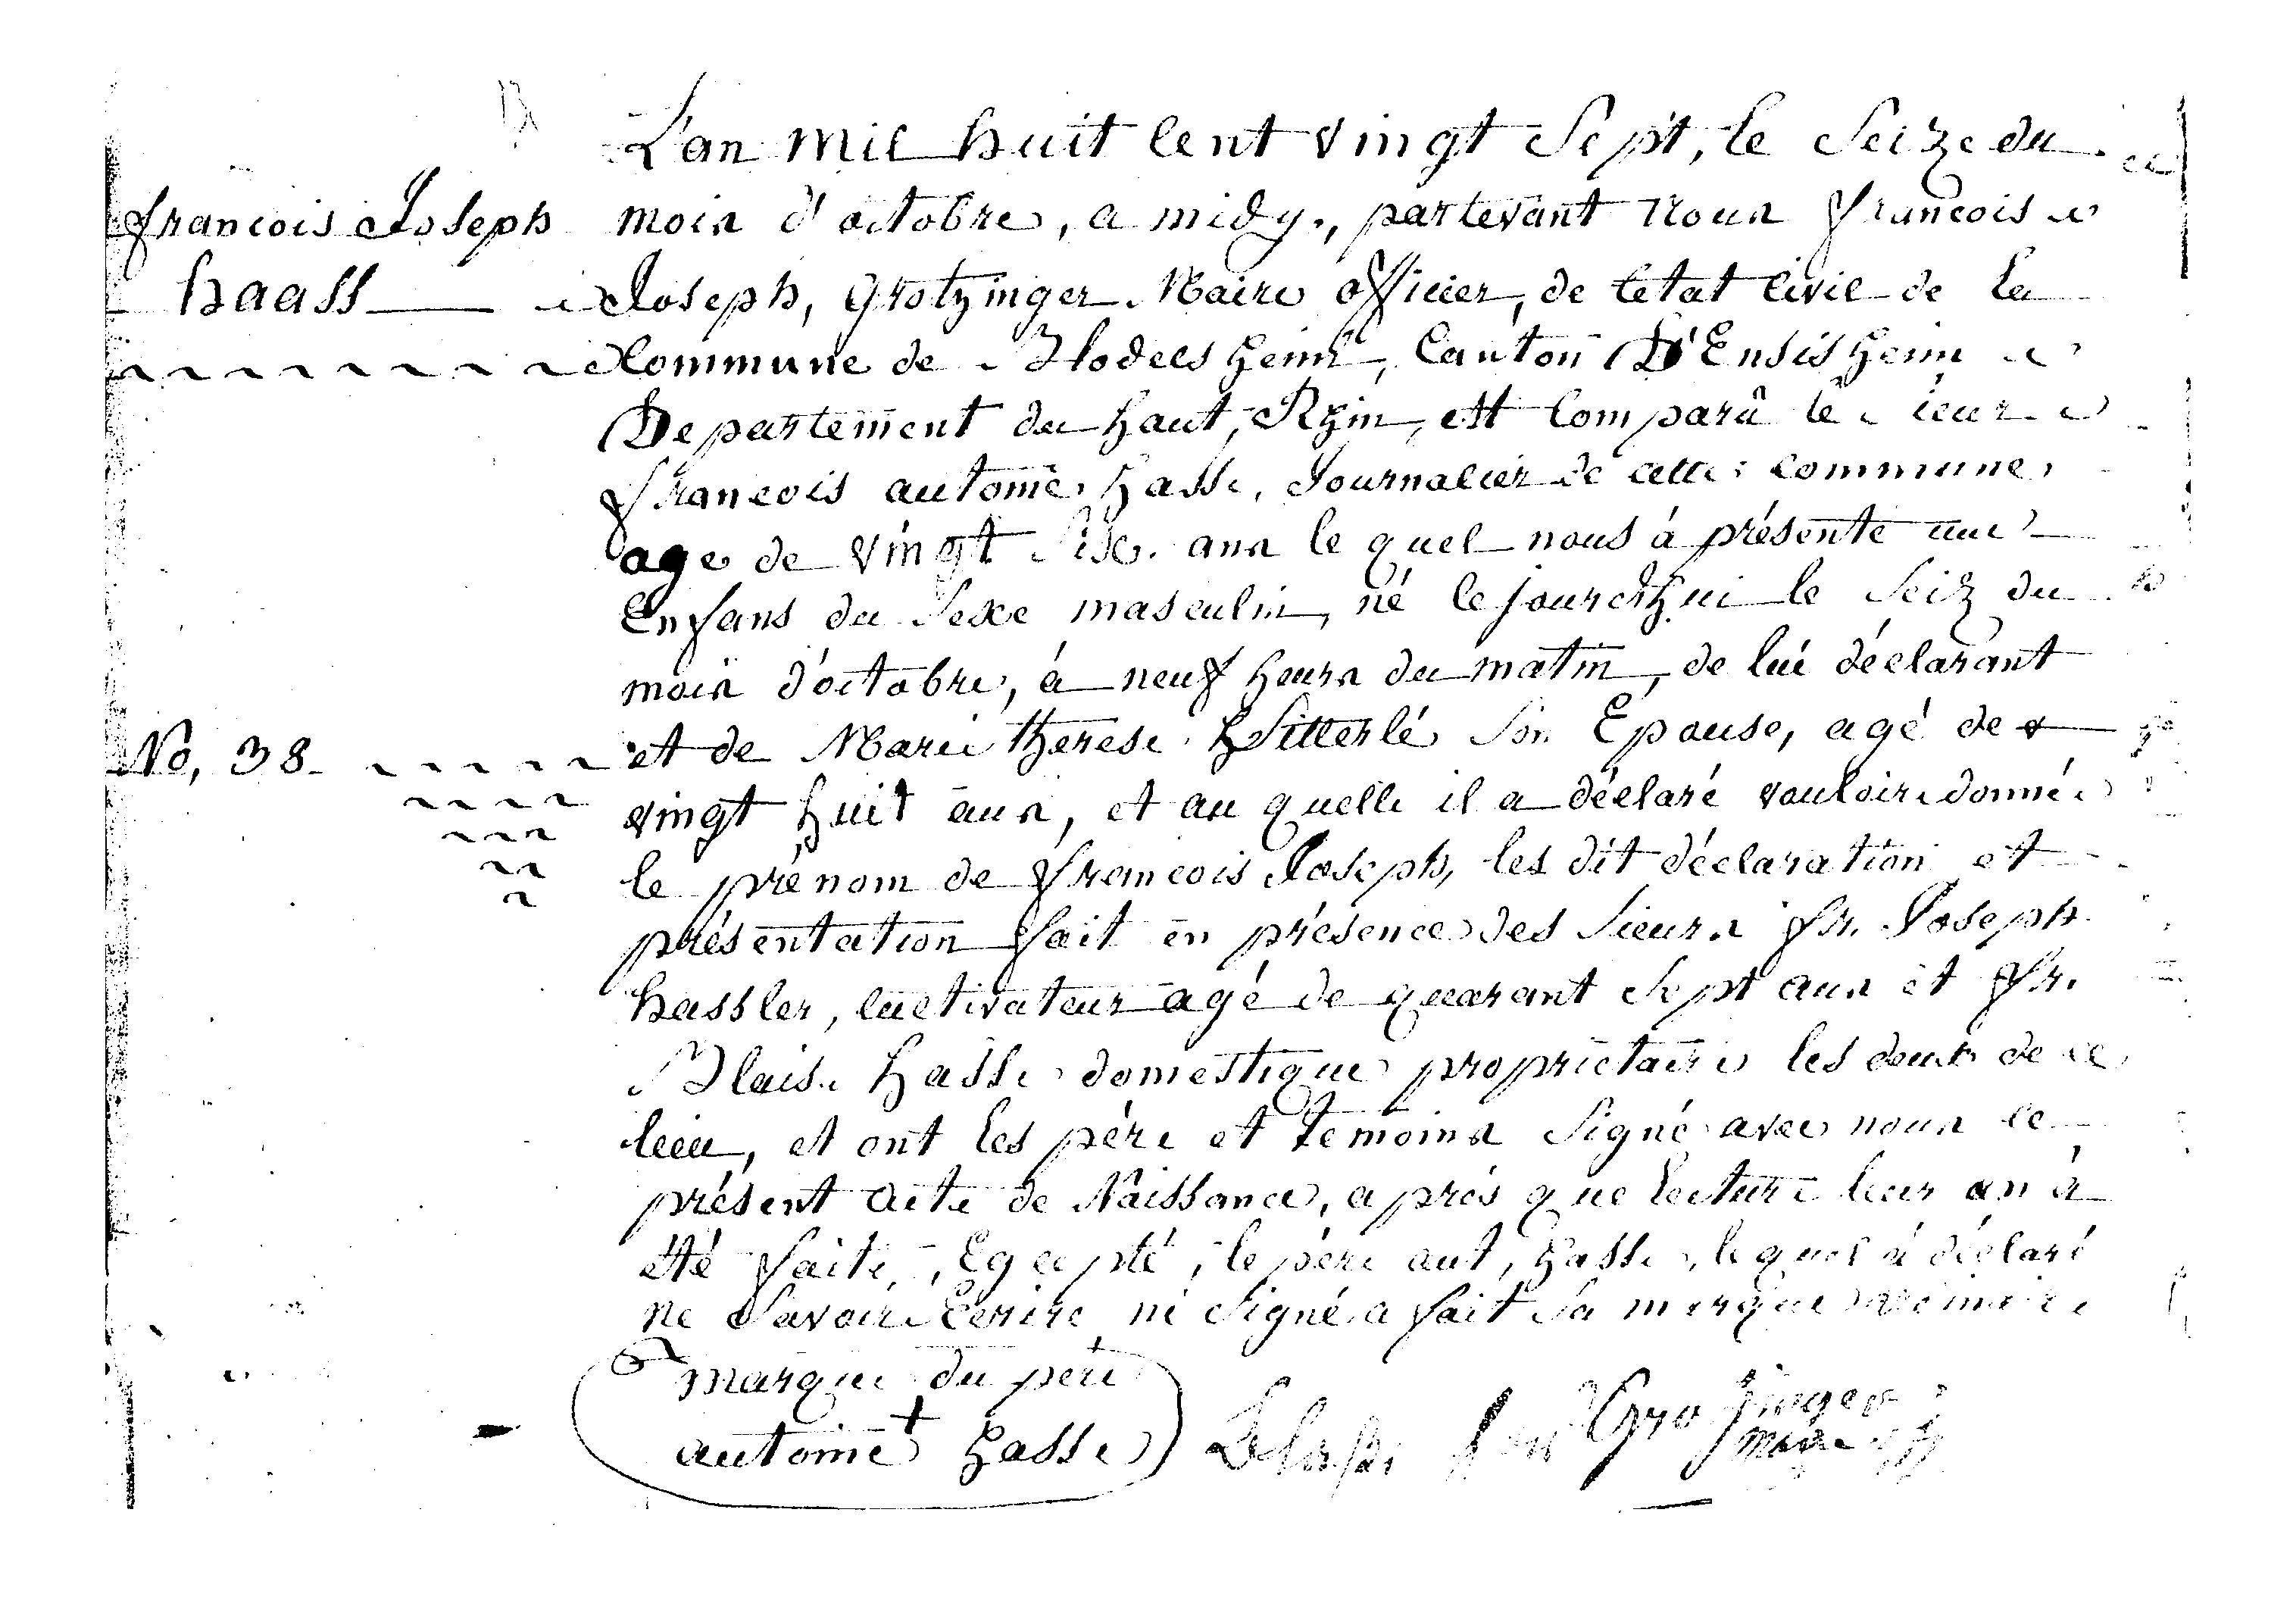 L'an mil huit Cent Vingt Sept, le Seize du
francois Joseph
moin d'octobre, a midy, partevant noun francois
haass
Joseph, Grotzinger Maire officier, de letat Civil de la
Commune de Blodelsheim, Canton D'Ensisheim
Departement du haut, Rhin, est Comparû le ieur
francois antoine hasse, Journalier de cette commune
age de Vingt Six ann le quel nous á présente une
Enfans du Sexe masculin, né le jourdhui le Seiz du
moin d'octobre, á neuf heurn du matin, de lui déclarant
No, 38
et de Marie therese Sitterlé Son Epouse, agé de
vingt huit ann, et au quelle il a déclaré vouloire donné
le prénom de francois Joseph, les dit déclaration et
présentation fait en présence des Sieurn fr. Joseph
hassler, Cultivateur agé de quarant Sept ann et fr.
Blaise hasse domestique proprietaire les deux de ce
lieu, et ont les père et temoinn Signé avec noun le
présent acte de Naissance, a prés que lecture leur an á
été faite, Egcepté, le père ant, hasse, le quel á déclaré
ne Savoire Ecrire ni Signé a fait Sa marque
marque du pere
antoine + hasse
maire